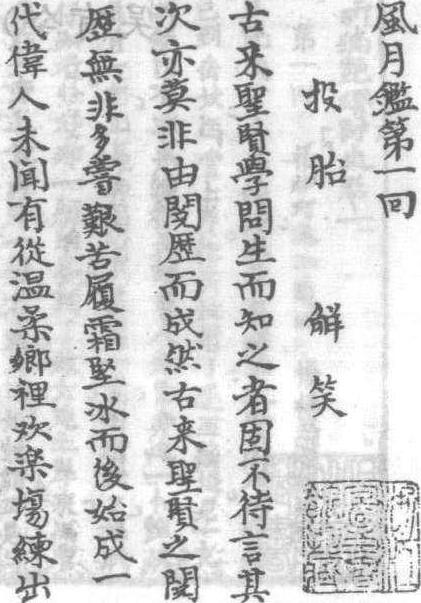 風月鑑第一回
投胎　解笑
古来聖賢學問生而知之者固不待言其
次亦莫非由閱歷而成然古来聖賢之閱
歷無非多嘗艱苦履霜堅冰而後始成一
代偉人未聞有從温柔鄉裡欢楽場練出